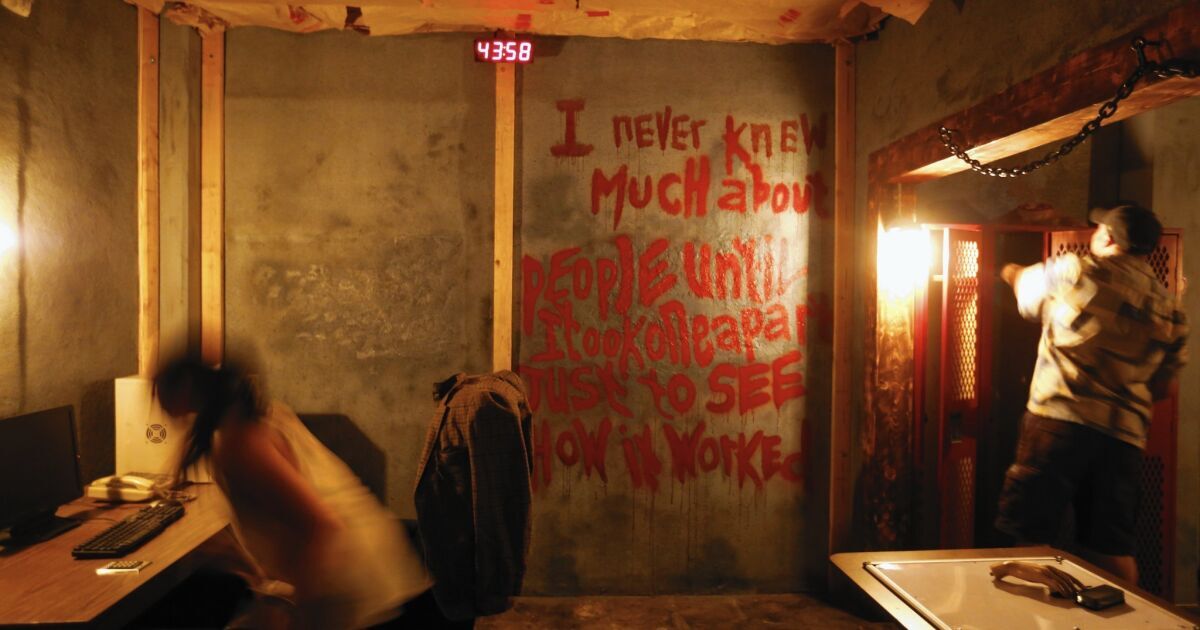 43:58
I nEVEr knEW
MucH about
pEOplE until
I took onE apart
JUST to SEE
HOW it WorkEd